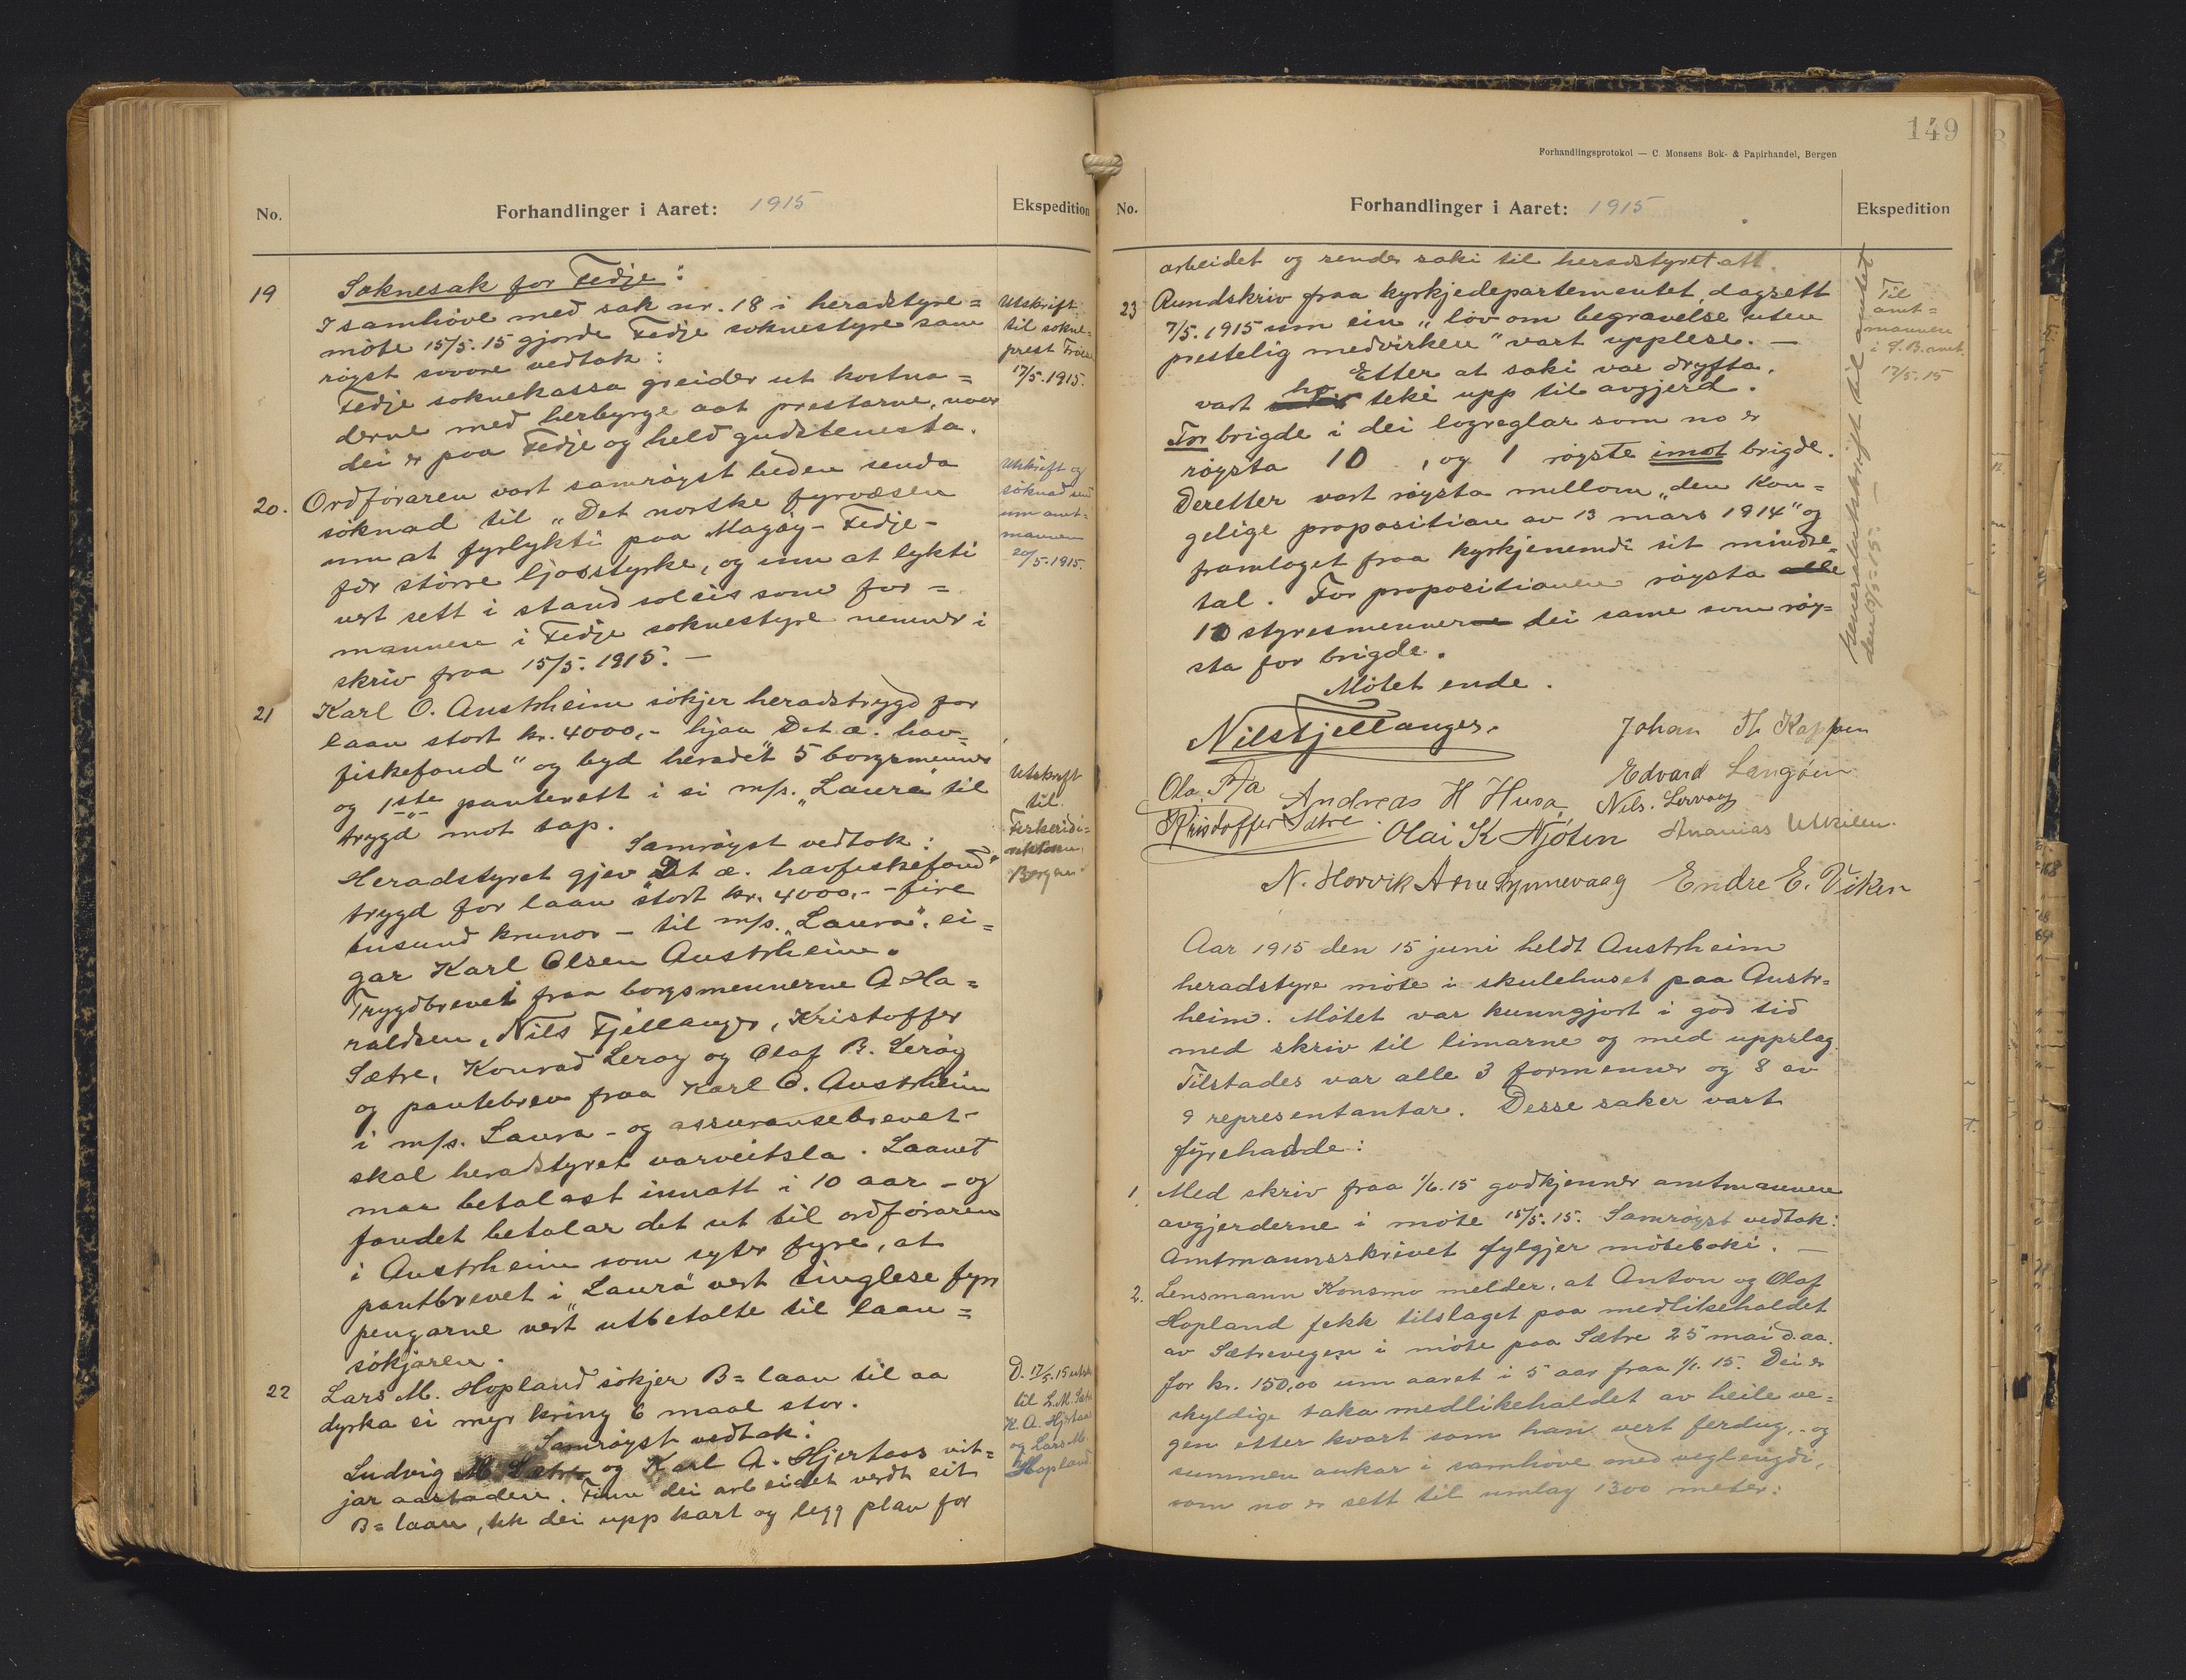 No.
Forhandlinger i Aaret: 1915
Ekspedition
19
Soknesak for Fedje:
I samhöve med sak nr. 18 i heradstyre=
möte 15/5. 15 gjorde Fedje soknestyre sam
röyst sovore vedtak:
Fedje soknekassa greider ut kostna=
derne med herbyrge aat prestarne, naar
dei er paa Fedje og held gudstenesta.
Utskrift
til sokne=
prest
17/5. 1915.
20.
Ordföraren vart samröyst beden senda
söknad til "Det norske fyrvæsen
um at fyrlykti paa Magöy - Fedje -
fær större ljosstyrke, og um at lykti
vert sett i stand soleis som for=
mannen i Fedje soknestyre nemner i
skriv fraa 15/5. 1915. -
Utskrift og
söknad send
um amt=
mannen
20/5. 1915.
21
Karl O. Austrheim sökjer heradstrygd for
laan stort kr. 4000,- hjaa "Det æ. hav=
fiskefond" og byd heradet 5 borgsmenner
og 1ste panterett i si m/s. "Laura" til
trygd mot tap.
Samröyst vedtok:
Heradstyret gjev "Det æ. havfiskefond"
trygd for laan stort kr. 4000,- - fire
tusund krunor - til m/s. "Laura", ei=
gar Karl Olsen Austrheim.
Trygdbrevet fraa borgsmennerne A Ha=
raldsen, Nils Fjellanger, Kristoffer
Sætre, Konrad Leröy og Olaf B. Leröy
og pantebrev fraa Karl O. Austrheim
i m/s. Laura - og assuransebrevet -
skal heradstyret varveitsla. Laanet
maa betalast innatt i 10 aar - og
fondet betalar det ut til ordföraren
i Austrheim som syter fyre, at
pantbrevet i "Laura" vert tinglese fyrr
pengarne vert utbetalte til laan=
sökjaren.
Utskrift
til
Fiskeridi=
rektören,
Bergen
22
Lars M. Hopland sökjer B= laan til aa
dyrka ei myr kring 6 maal stor.
Samröyst vedtak:
Ludvig M Sætre og Karl A. Hjertaas vit=
jar aastaden. Finn dei arbeidet verdt eit
B= laan, tek dei upp kart og legg plan for
D. 17/5. 15 utskr
til L. M. Sætre
K. A. Hjertaas
og Lars M.
Hopland.
149
Forhandlingsprotokol — C. Monsens Bok- & Papirhandel, Bergen
No.
Forhandlinger i Aaret: 1915
Ekspedition
arbeidet og sender saki til heradstyret att.
23
Rundskriv fraa kyrkjedepartementet, dagsett
7/5. 1915 um ein "lov om begravelse uten
prestelig medvirken" vart upplese. -
Etter at saki var dryfta,
vart ho teki upp til avgjerd.
For brigde i dei logreglar som no er
röysta 10, og 1 röyste imot brigde.
Deretter vart röysta millom "den Kon=
gelige proposition av 13 mars 1914" og
framlaget fraa kyrkjenemdi sit mindre=
tal. For propositionen röysta alle
10 styresmennerne dei same som röy=
sta for brigde.
Mötet ende.
Til
amt=
mannen
i S. B. amt.
17/5. 15
Generalutskrift til amtet
den 18/5. 15.
Nils Fjellanger.
Johan Th Kappen
Ola Aa
Andreas H Husa
Edvard Langöen
Nils. Lervaag
Kristoffer Sætre
Olai K Njöten
Ananias Utkilen.
N. Horvik
Arne Synnevaag
Endre E. Viken
Aar 1915 den 15 juni heldt Austrheim
heradstyre möte i skulehuset paa Austr=
heim. Mötet var kunngjort i god tid
med skriv til limarne og med uppslag.
Tilstades var alle 3 formenner og 8 av
9 representantar. Desse saker vart
fyrehadde:
1
Med skriv fraa 1/6. 15 godkjenner amtmannen
avgjerderne i möte 15/5. 15. Samröyst vedtak:
Amtmannsskrivet fylgjer möteboki. -
2.
Lensmann Konsmo melder, at Anton og Olaf
Hopland fekk tilslaget paa medlikehaldet
av Sætrevegen i möte paa Sætre 25 mai d. aa.
for kr. 150,00 um aaret i 5 aar fraa 1/1. 15. Dei er
skyldige taka medlikehaldet av heile ve=
gen etter kvart som han vert ferdug, - og
summen aukar i samhöve med veglengdi,
som no er sett til umlag 1300 meter: